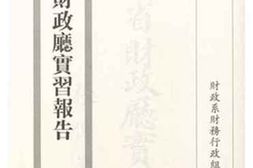 財政廳實習報告
省財政廳實
財政系財務行政組